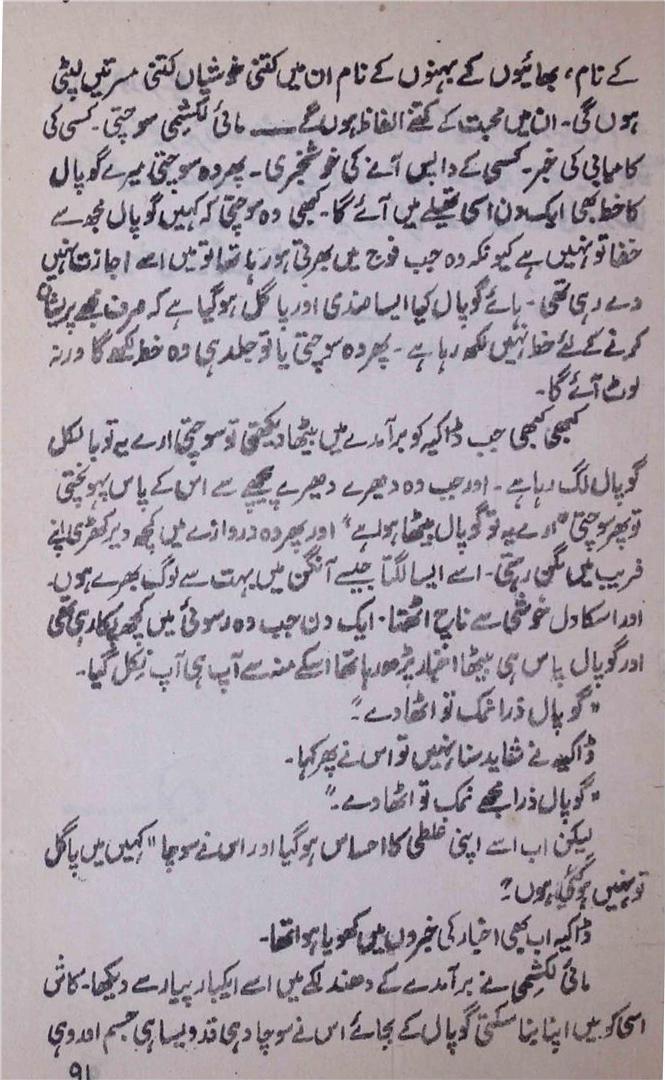 کے نام، بھائیوں کے بہنوں کے نام ان میں کتنی خوشیاں کتنی مسرتیں لپٹی
ہوں گی۔ ان میں محبت کے کتنے الفاظ ہوں گے ــــ مائی لکشمی سوچتی۔ کسی کی
کامیابی کی خبر۔ کسی کے واپس آنے کی خوشخبری۔ پھر وہ سوچتی میرے گوپال
کا خط بھی ایک دن اسی تھیلے میں آئے گا۔ کبھی وہ سوچتی کہ کہیں گوپال مجھ سے
خفا تو نہیں ہے کیونکہ وہ جب فوج میں بھرتی ہو رہا تھا تو میں اسے اجازت نہیں
دے رہی تھی۔ ہائے گوپال کیا ایسا ضدی اور پاگل ہو گیا ہے کہ صرف مجھے پریشان
کرنے کے لئے خط نہیں لکھ رہا ہے۔ پھر وہ سوچتی یا تو جلد ہی وہ خط لکھے گا ورنہ
لوٹ آئے گا۔
کبھی کبھی جب ڈاکیہ کو برآمدے میں بیٹھا دیکھتی تو سوچتی ارے یہ تو بالکل
گوپال لگ رہا ہے۔ اور جب وہ دھیرے دھیرے پیچھے سے اس کے پاس پہونچتی
تو پھر سوچتی "ارے یہ تو گوپال بیٹھا ہوا ہے" اور پھر وہ دروازے میں کچھ دیر کھڑی اپنے
فریب میں مگن رہتی۔ اسے ایسا لگتا جیسے آنگن میں بہت سے لوگ بھرے ہوں۔
اور اسکا دل خوشی سے ناچ اٹھتا۔ ایک دن جب وہ رسوئی میں کچھ پکا رہی تھی
اور گوپال پاس ہی بیٹھا اخبار پڑھ رہا تھا اسکے منہ سے آپ ہی آپ نکل گیا۔
"گوپال ذرا نمک تو اٹھا دے۔"
ڈاکیہ نے شاید سنا نہیں تو اس نے پھر کہا۔
"گوپال ذرا مجھے نمک تو اٹھا دے۔"
لیکن اب اسے اپنی غلطی کا احساس ہو گیا اور اس نے سوچا "کہیں میں پاگل
تو نہیں ہو گئی ہوں۔"
ڈاکیہ اب بھی اخبار کی خبروں میں کھویا ہوا تھا۔
مائی لکشمی نے برآمدے کے دھندلکے میں اسے ایکبار پیار سے دیکھا۔ کاش
اسی کو میں اپنا بنا سکتی گوپال کے بجائے اس نے سوچا وہی قد ویسا ہی جسم اور وہی
۹۱